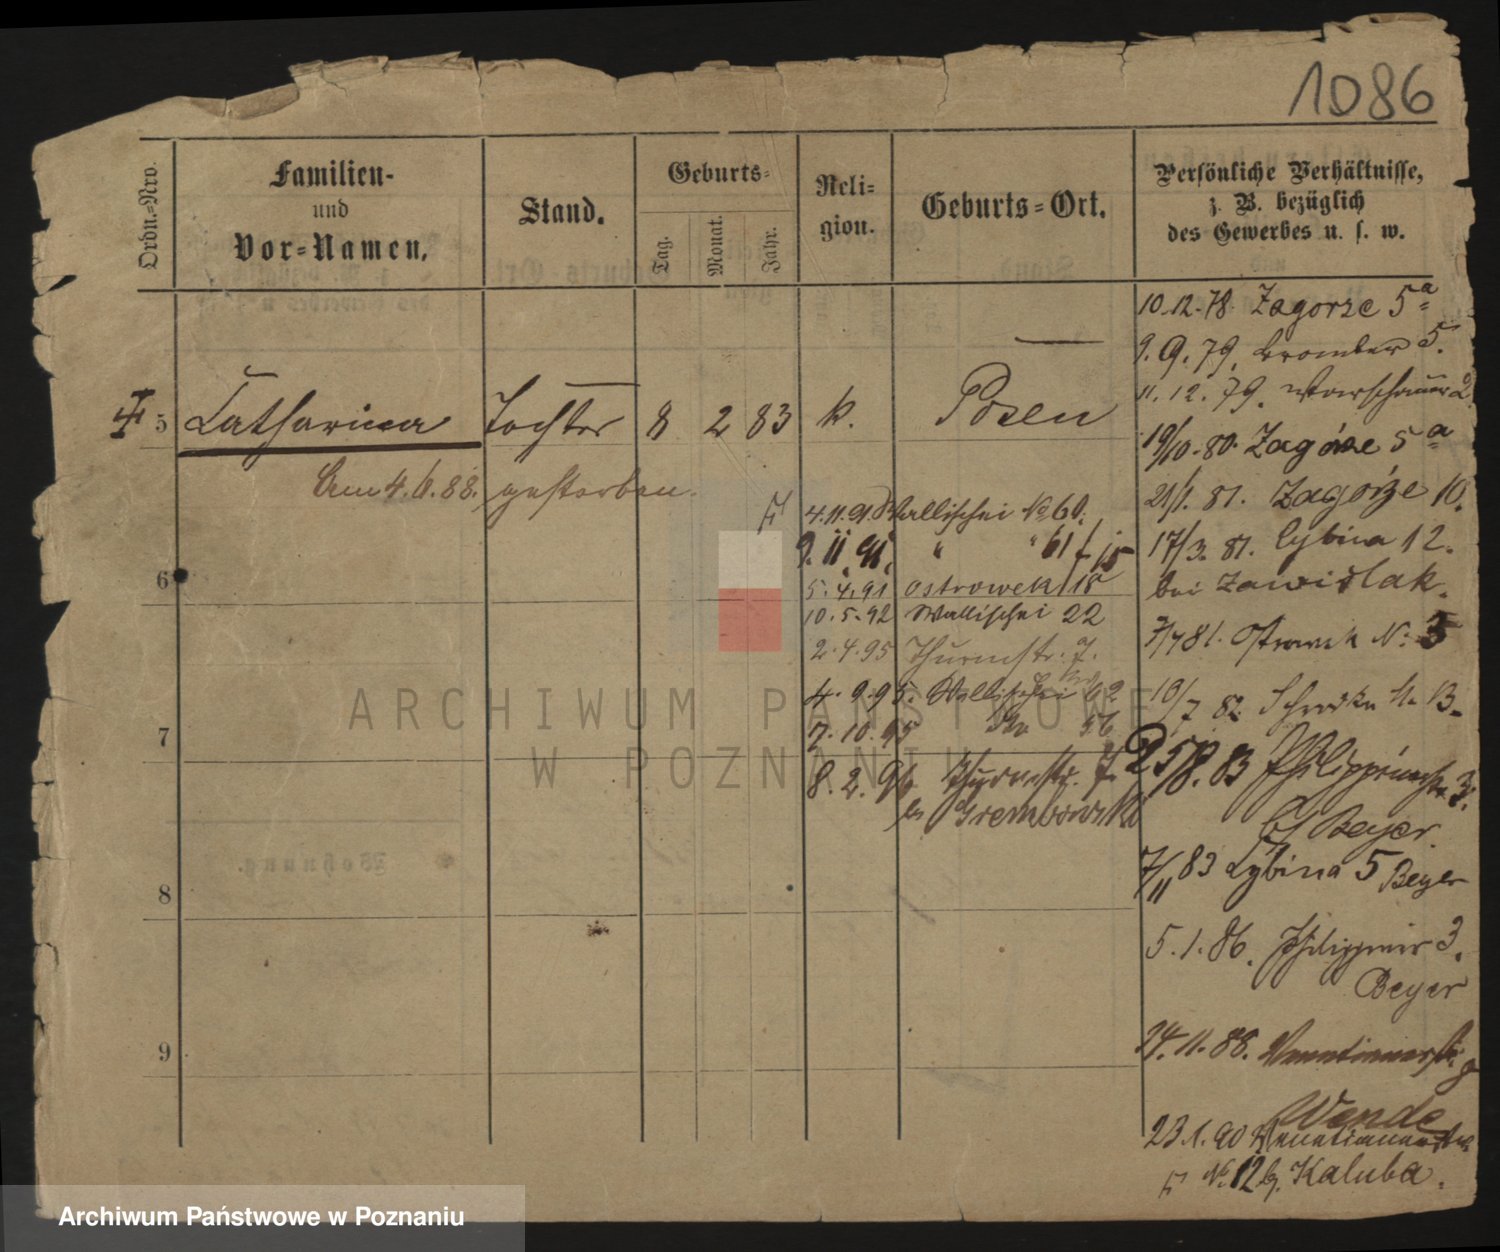 1086
Ordn.=Nro.
Familien-
und
Vor=Namen.
Stand.
Geburts=
Tag.
Monat.
Jahr.
Reli=
gion.
Geburts=Ort.
Persönliche Verhältnisse,
z. B. bezüglich
des Gewerbes u. s. w.
5 Catharina Tochter 8 2 83 k. Posen
Am 4.6.88. gestorben.
6
7
8
9
4.11.91 Wallischei No 60.
9.11.91. " " 61
5.4.91 Ostrowek 18
10.5.92 Wallischei 22
2.4.95 Thurmstr. 7.
4.9.95. Wallischei 62
7.10.95 56
8.2.96 Thurmstr. 7.
Grembowski
10.12.78 Zagorze 5a
9.9.79. 5.
11.12.79. Warschauer 2.
19/10.80. Zagórze 5a
21/1.81. Zagórze 10.
17/3.81. Cybina 12.
bei Zawidlak.
7/4 81. Ostrowek No 5
10/7 82 Schrodka 13.
25/8.83 Philippinerstr. 3.
bei Beyer.
7/11 83 Cybina 5 Beyer
5.1.86. Philippiner 3.
Beyer
24.11.88. Venetianerstr. 9
Wende
23.1.90 Venetianerstr.
No. 12 b. Kaluba.
ARCHIWUM PAŃSTWOWE
W POZNANIU
Archiwum Państwowe w Poznaniu